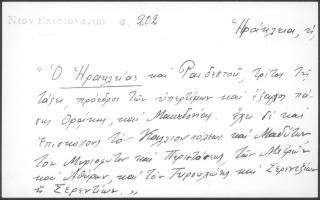 Νέον Επιστολάριον σ. 202
Ἡράκλεια, ἡ
" Ὁ Ἡρακλείας καὶ Ραιδεστοῦ, τρίτος τῇ
τάξει, πρόεδρος τῶν ὑπερτίμων καὶ ἔξαρχος πά-
σης Θράκης, καὶ Μακεδονίας. ἔχει δὲ καὶ
Ἐπισκόπους τὸν Καλλιουπόλεως καὶ Μαδύτων
τὸν Μυριοφύτου καὶ Περιστάσεως, τὸν Μετρῶν
καὶ Ἀθύρων, καὶ τὸν Τυρολόης καὶ Σερεντζίου
ἢ Σερεντίων. „